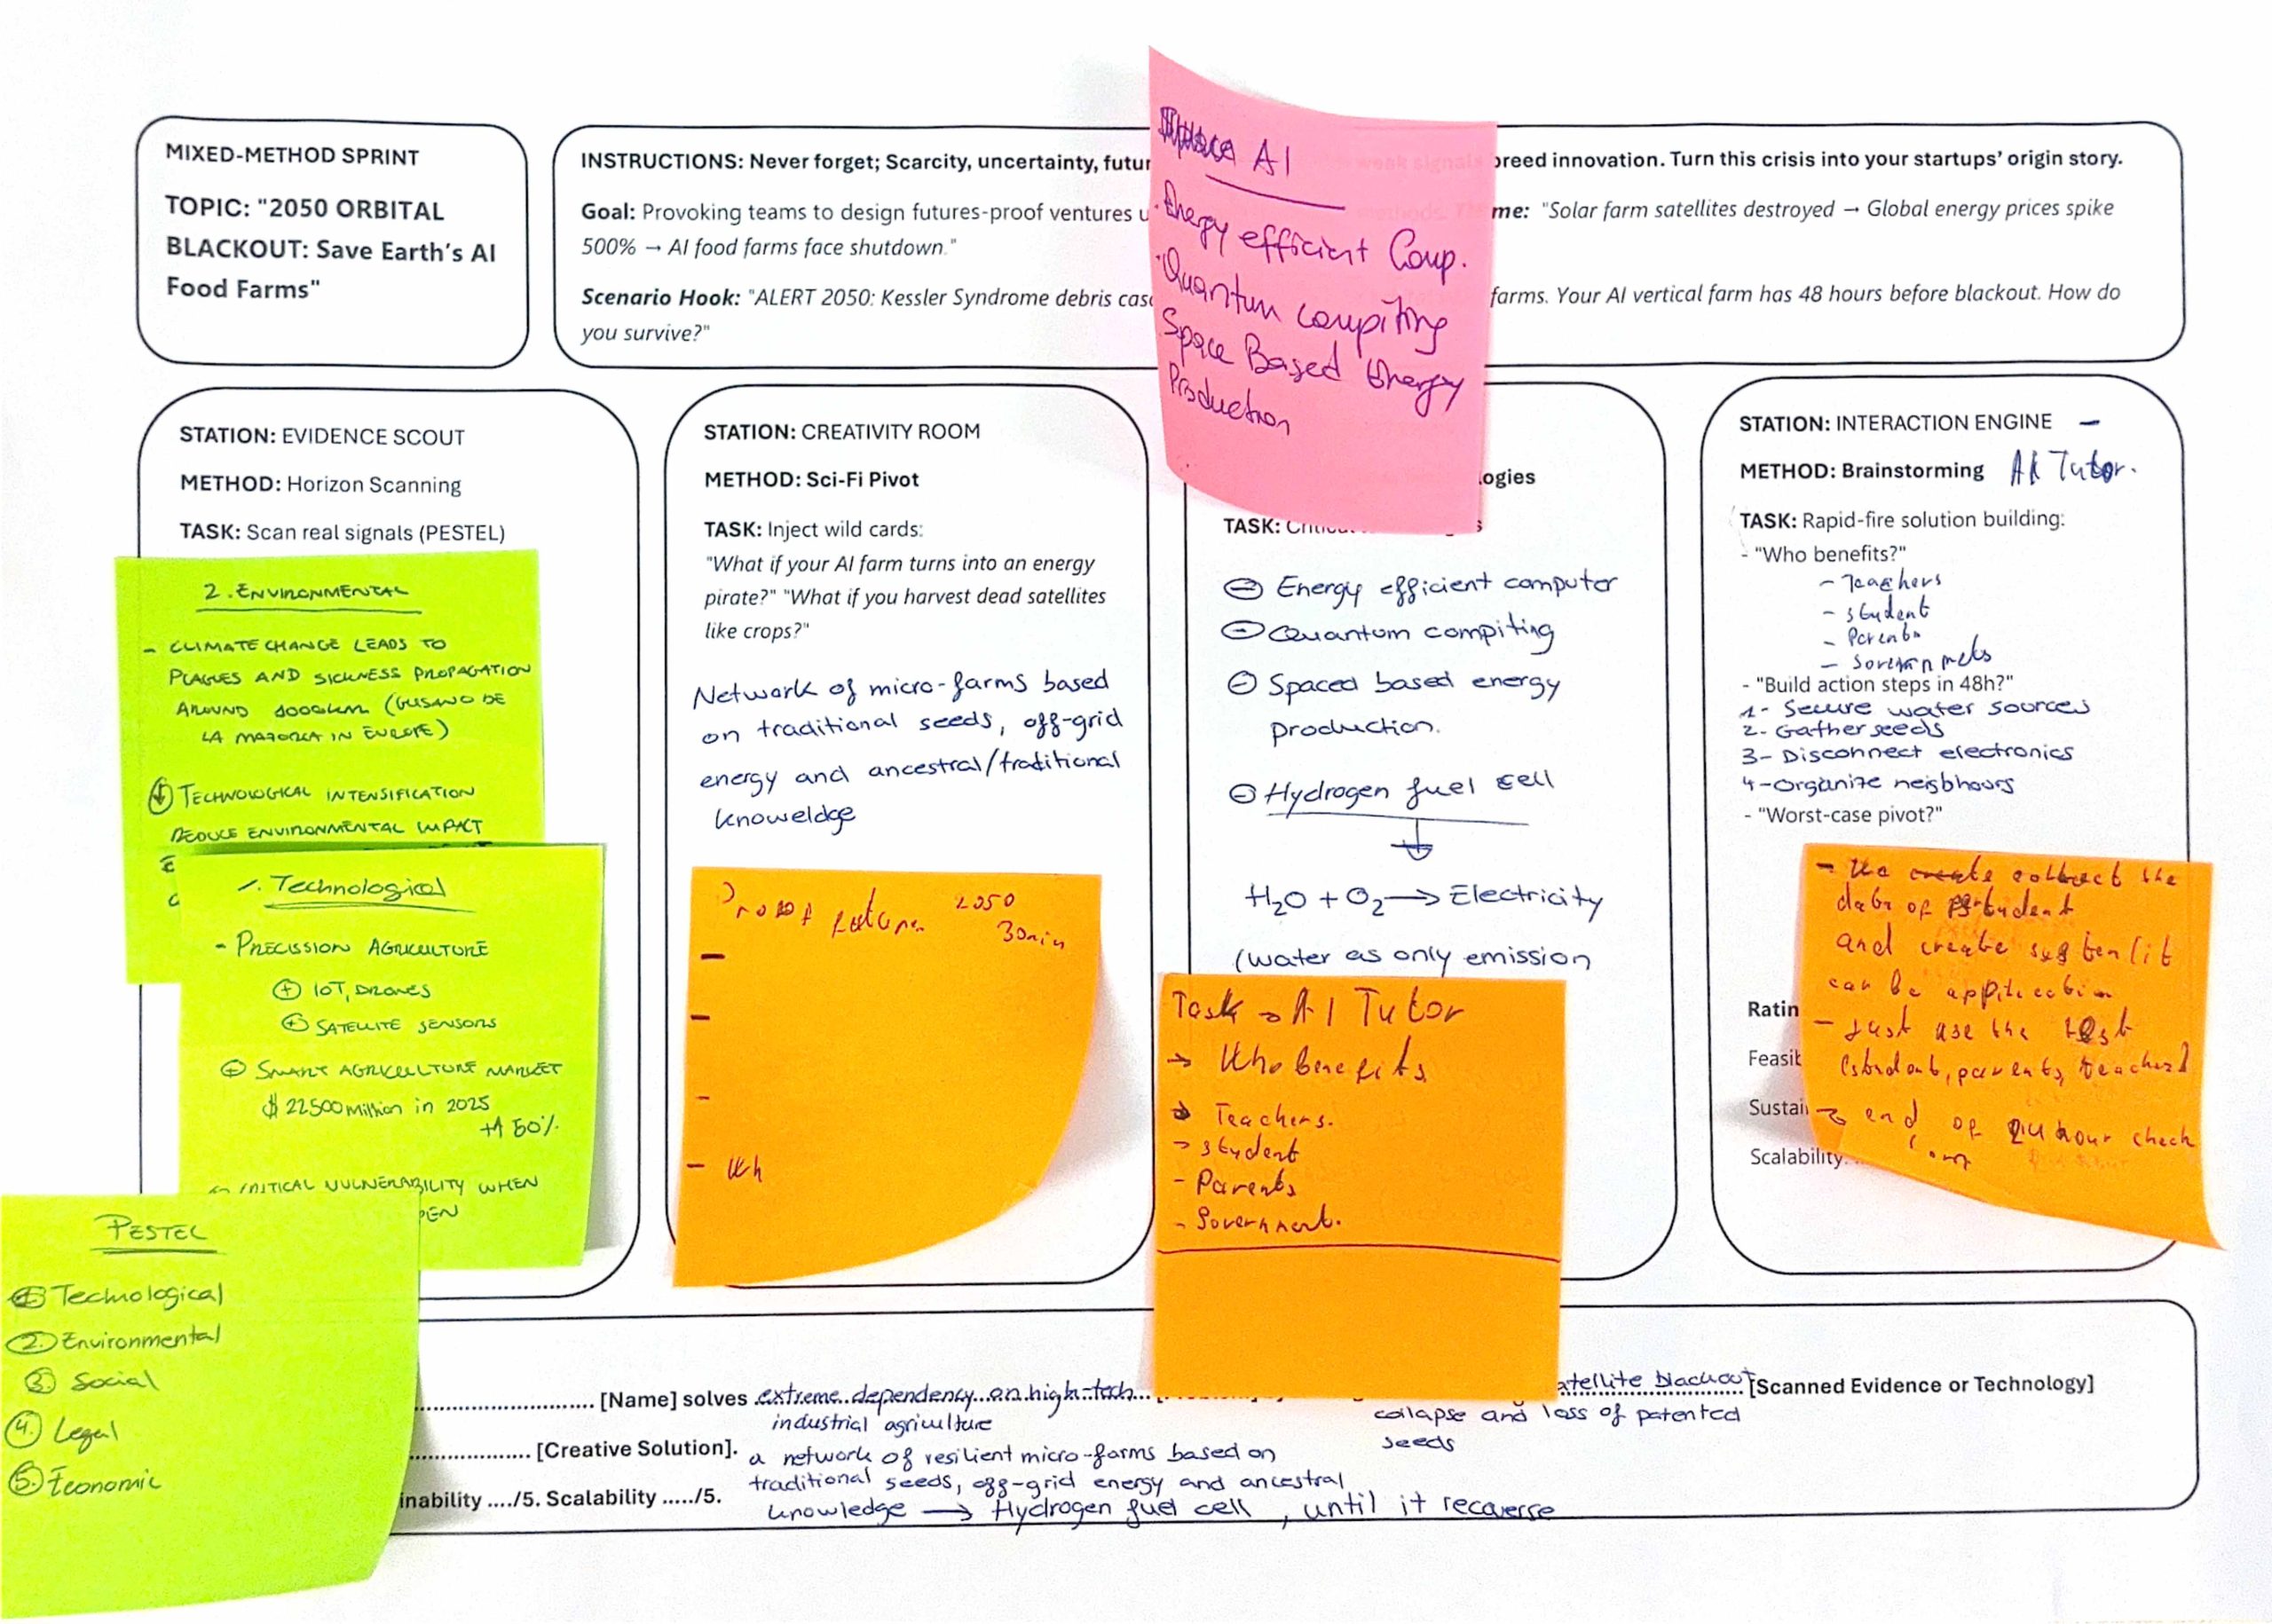 MIXED-METHOD SPRINT
TOPIC: "2050 ORBITAL
BLACKOUT: Save Earth's AI
Food Farms"
INSTRUCTIONS: Never forget; Scarcity, uncertainty, futur
breed innovation. Turn this crisis into your startups' origin story.
Goal: Provoking teams to design futures-proof ventures u
me: "Solar farm satellites destroyed → Global energy prices spike
500% → AI food farms face shutdown."
Scenario Hook: "ALERT 2050: Kessler Syndrome debris casc
farms. Your AI vertical farm has 48 hours before blackout. How do
you survive?"
AI
- Energy efficient Comp.
- Quantum compiting
Space Based Energy
Production
STATION: EVIDENCE SCOUT
METHOD: Horizon Scanning
TASK: Scan real signals (PESTEL)
2. ENVIRONMENTAL
- CLIMATE CHANGE LEADS TO
PLAGUES AND SICKNESS PROPAGATION
AROUND 1000km (GUSANO DE
LA MAZORCA IN EUROPE)
TECHNOLOGICAL INTENSIFICATION
REDUCE ENVIRONMENTAL IMPACT
1. Technological
- PRECISSION AGRICULTURE
+ IOT, DRONES
+ SATELLITE SENSORS
SMART AGRICULTURE MARKET
$ 22500 million in 2025
CRITICAL VULNERABILITY WHEN
PEN
PESTEL
1. Technological
2. Environmental
3. Social
4. Legal
5. Economic
STATION: CREATIVITY ROOM
METHOD: Sci-Fi Pivot
TASK: Inject wild cards:
"What if your AI farm turns into an energy
pirate?" "What if you harvest dead satellites
like crops?"
Network of micro-farms based
on traditional seeds, off-grid
energy and ancestral/traditional
knoweldge
2050
30min
- Wh
ogies
TASK:
Energy efficient computer
Quantum compiting
Spaced based energy
production.
Hydrogen fuel cell
H₂O + O₂ → Electricity
(water as only emission
Task → AI Tutor
→ Who benefits
→ Teachers.
→ student
- Parents
- Government.
STATION: INTERACTION ENGINE -
METHOD: Brainstorming AI Tutor.
TASK: Rapid-fire solution building:
- "Who benefits?"
- Teachers
- student
- Parents
-
- "Build action steps in 48h?"
1- Secure water sources
2- Gather seeds
3- Disconnect electronics
4- Organize neisbhours
- "Worst-case pivot?"
- We collect the
data of student
and create
can be
- Just use the test
(student, parents, teachers)
→ end of 24 hour check
Ratin
Feasib
Sustai
Scalability:
[Name] solves extreme dependency on high-tech
industrial agriculture
atellite blackout [Scanned Evidence or Technology]
collapse and loss of patented
seeds
[Creative Solution]. a network of resilient micro-farms based on
traditional seeds, off-grid energy and ancestral
inability ..../5. Scalability ...../5.
knowledge → Hydrogen fuel cell, until it recoverse